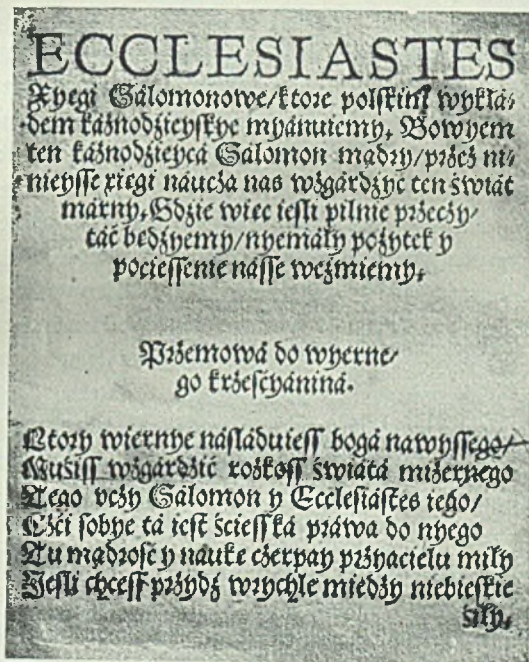 ECCLESIASTES
Xyęgi Sálomonowe/ktore polſkim wykłá⸗
dem káznodzieyſkye myánuiemy. Bowyem
ten káznodzieycá Sálomon mądry/przez ni⸗
nieyſſe xięgi naucża nas wzgárdzyć ten świát
márny. Gdzie wiec ieſli pilnie przecży⸗
táć bedzyemy/nyemáły pożytek y
pocieſſenie náſſe weźmiemy.
Przemowá do wyerne⸗
go krześcyániná.
Ktory wiernye náſláduieſſ bogá nawyſſego/
Muśiſſ wzgárdźić roſkoſſ świátá mizernego
Tego vcży Sálomon y Eccleſiáſtes iego/
Czći ſobye tá ieſt ścieſſká práwa do nyego
Tu mądrość y náuke cżerpay przyacielu miły
Jeſli chceſſ przydź wrychle miedzy niebieſkie
siły.